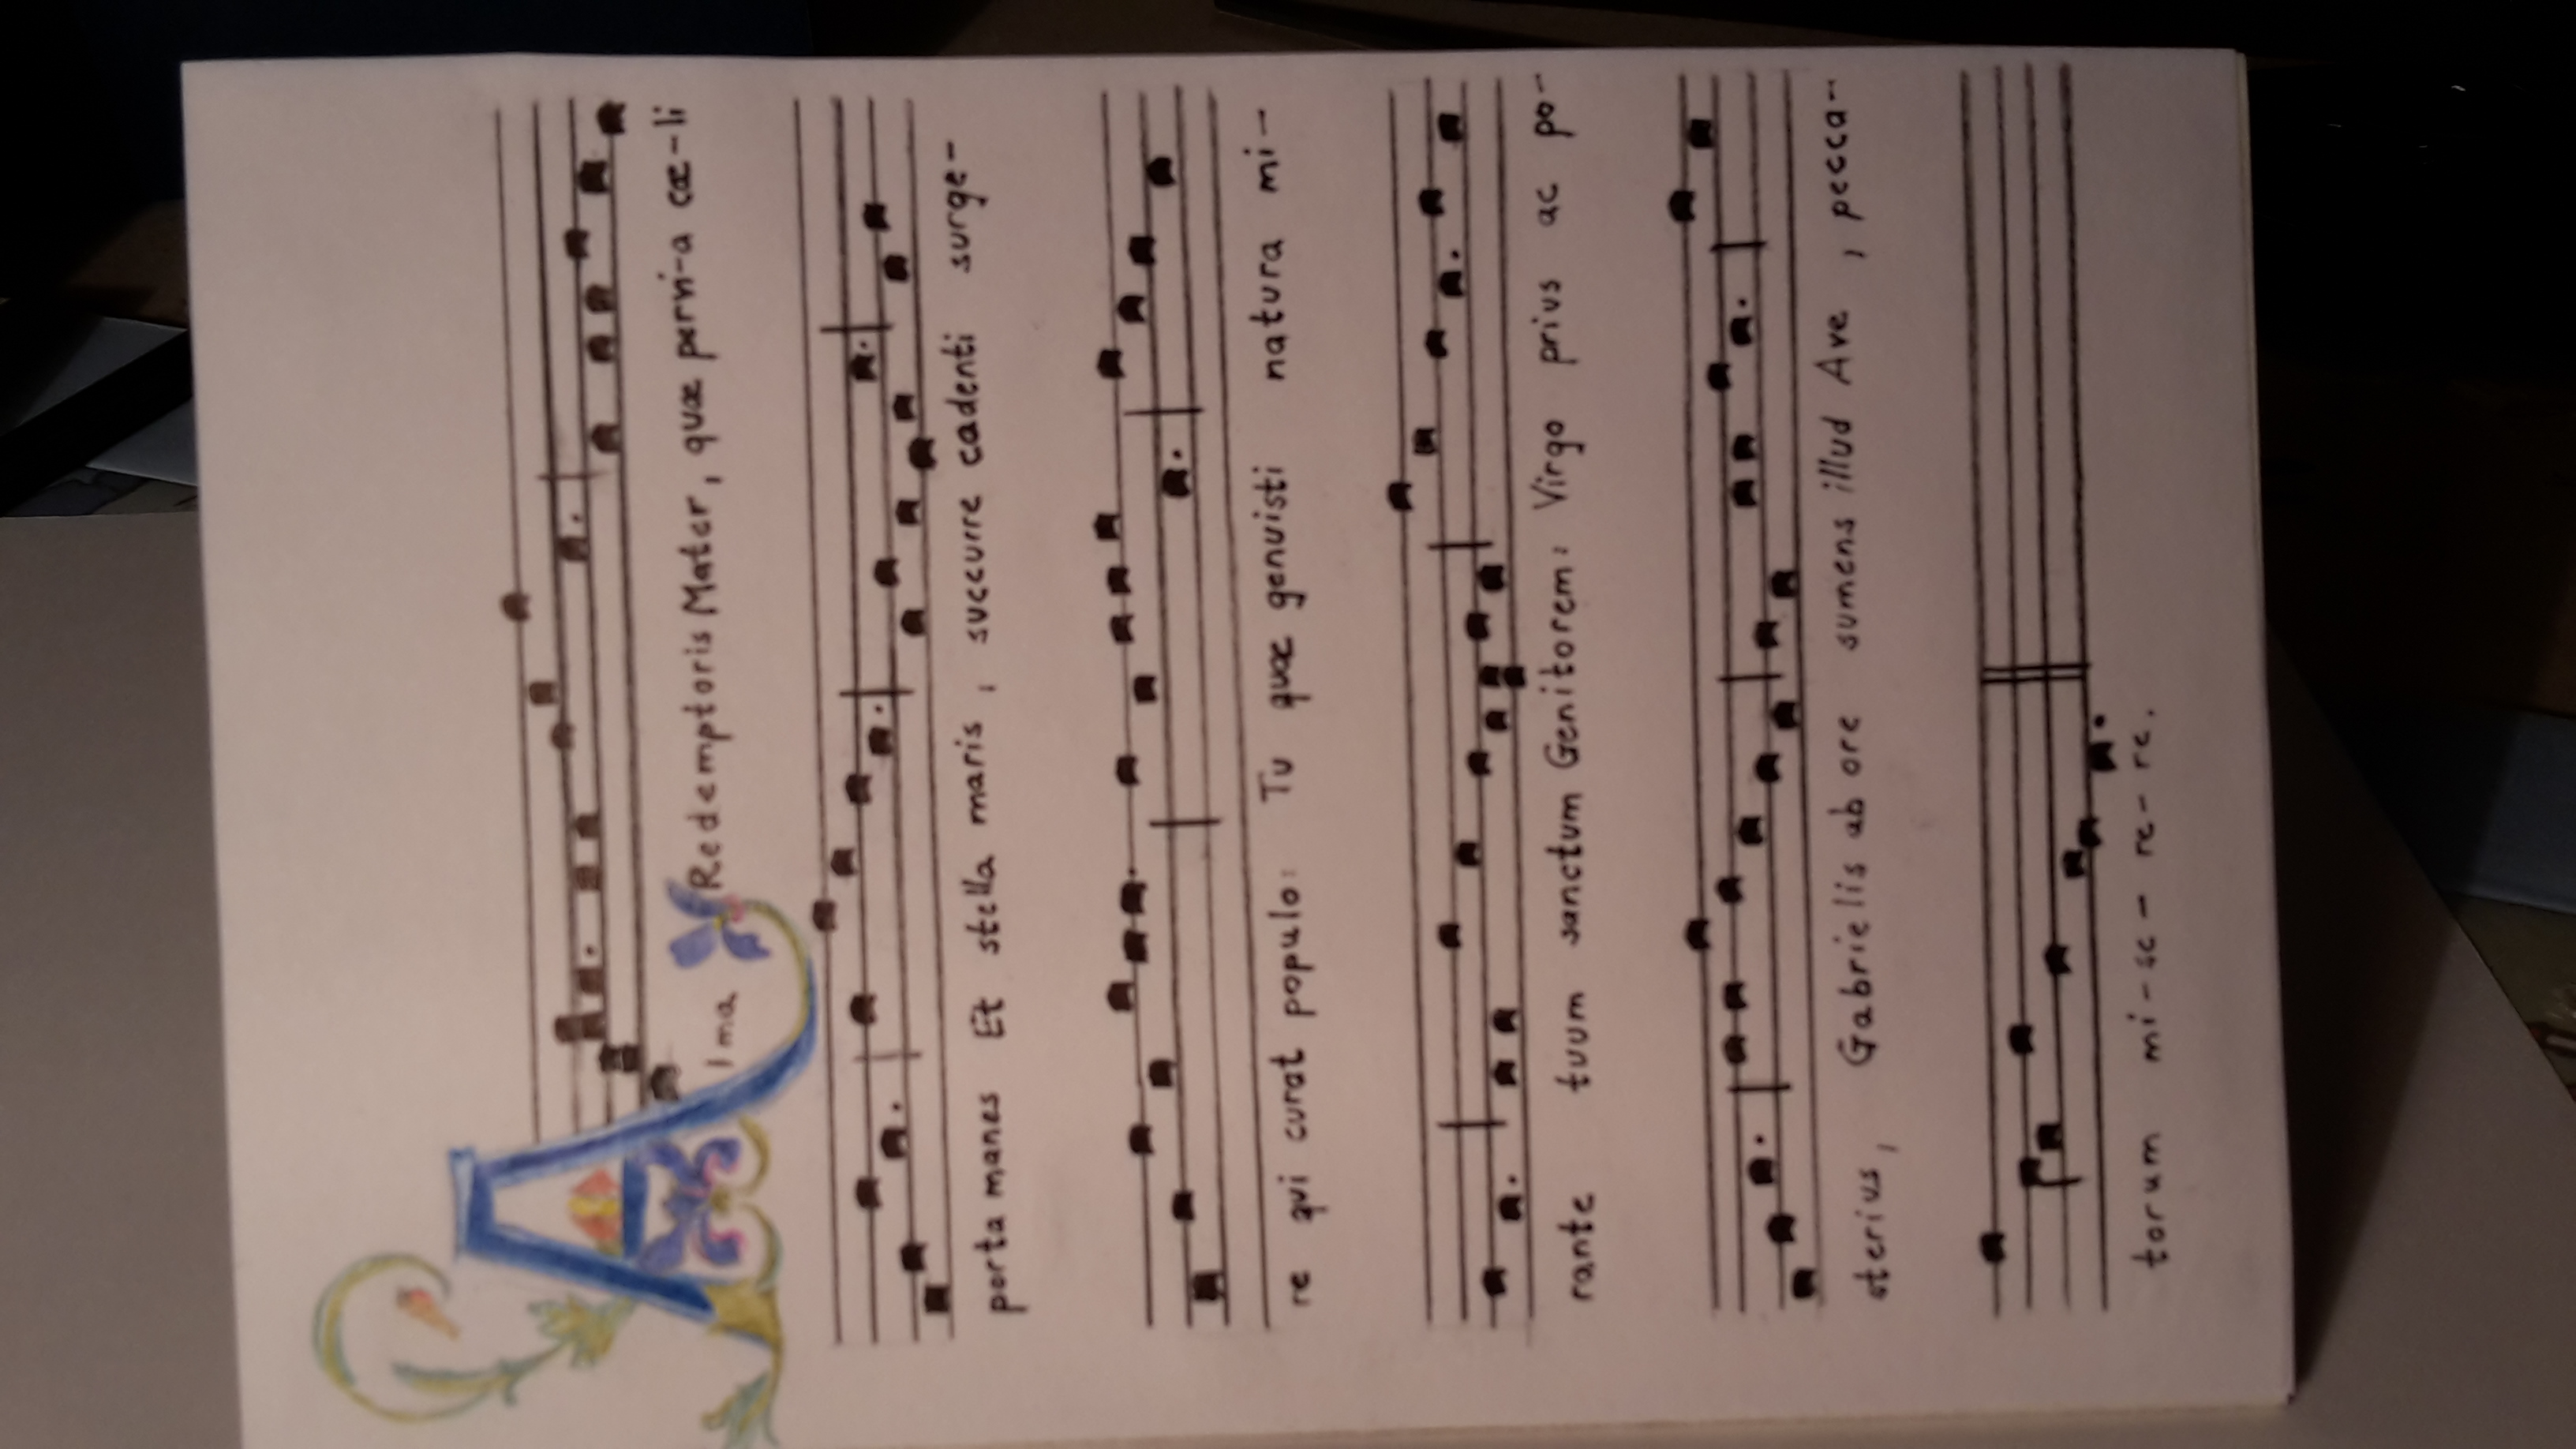 Alma Redemptoris Mater, quæ pervi-a cæ-li
porta manes Et stella maris, succurre cadenti surge-
re qui curat populo: Tu quæ genuisti natura mi-
rante tuum sanctum Genitorem: Virgo prius ac po-
sterius, Gabrielis ab ore sumens illud Ave, pecca-
torum mi-se-re-re.